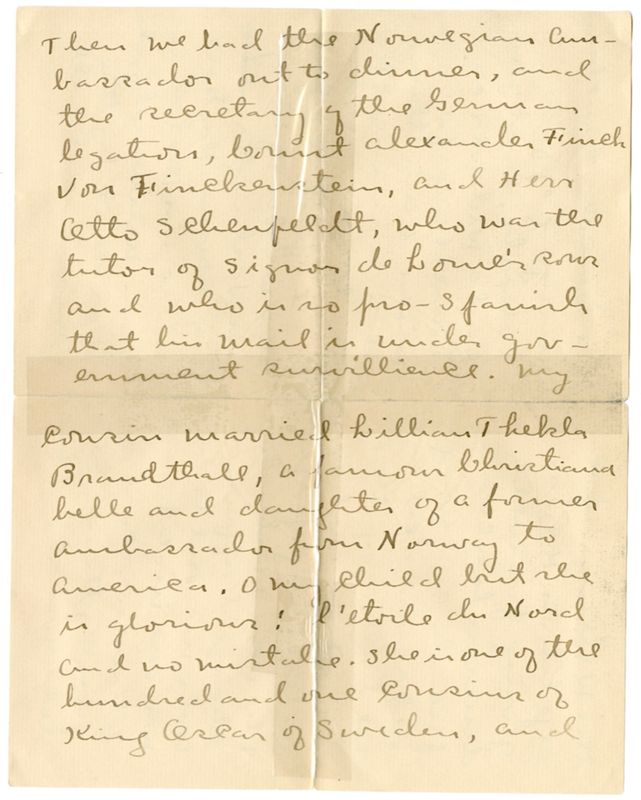 Then we had the Norwegian Am-
bassador out to dinner, and
the secretary of the German
legation, Count Alexander Finck
Von Finckenstein, and Herr
Otto Schenfeldt, who was the
tutor of Signor de Lome's sons
and who is so pro-Spanish
that his mail is under gov-
ernment survillience. My
cousin married Lillian Thekla
Brandthall, a famous Christiana
belle and daughter of a former
ambassador from Norway to
America. O my child but she
is glorious! l'etoile du Nord
and no mistake. She is one of the
hundred and one cousins of
King Oscar of Sweden, and